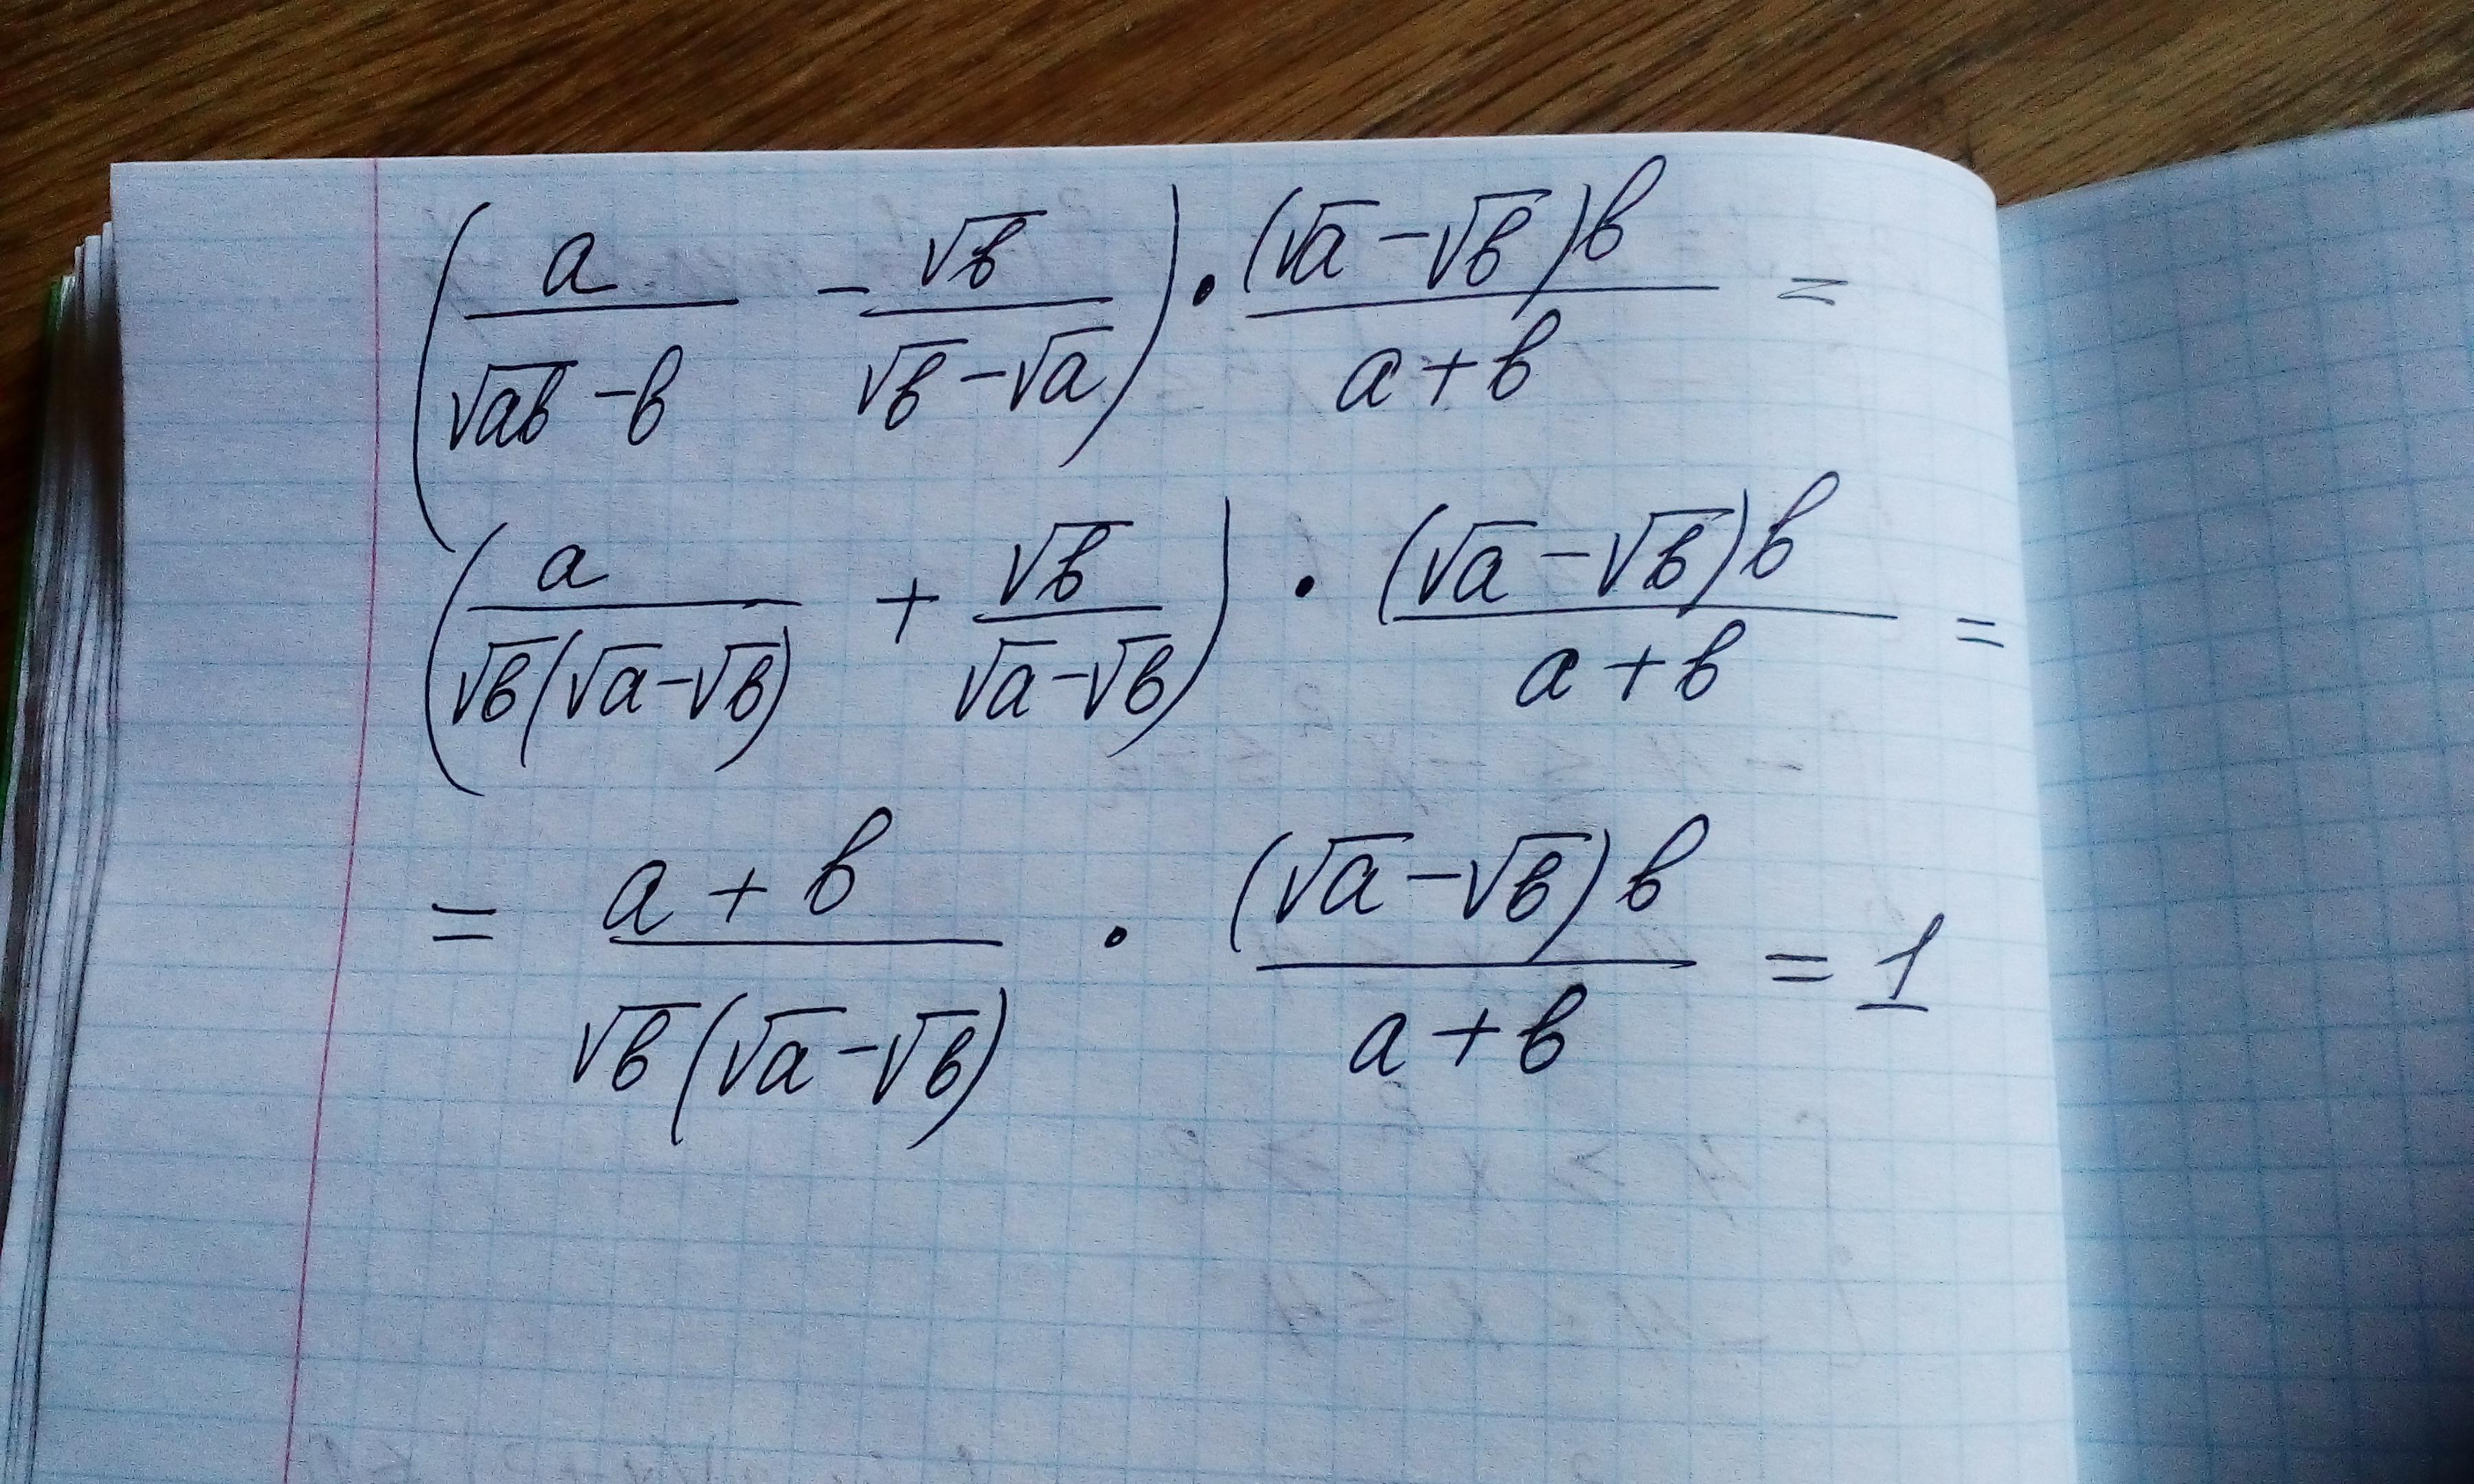 (a/(√ab − b) − √b/(√b − √a)) · (√a − √b)b/(a + b) =
(a/(√b(√a − √b)) + √b/(√a − √b)) · (√a − √b)b/(a + b) =
= (a + b)/(√b(√a − √b)) · (√a − √b)b/(a + b) = 1